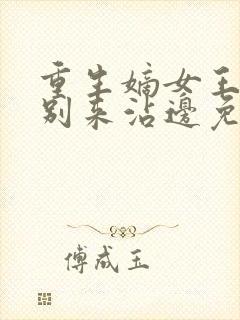 重生嫡女王
别来沾邊免
傅成玉